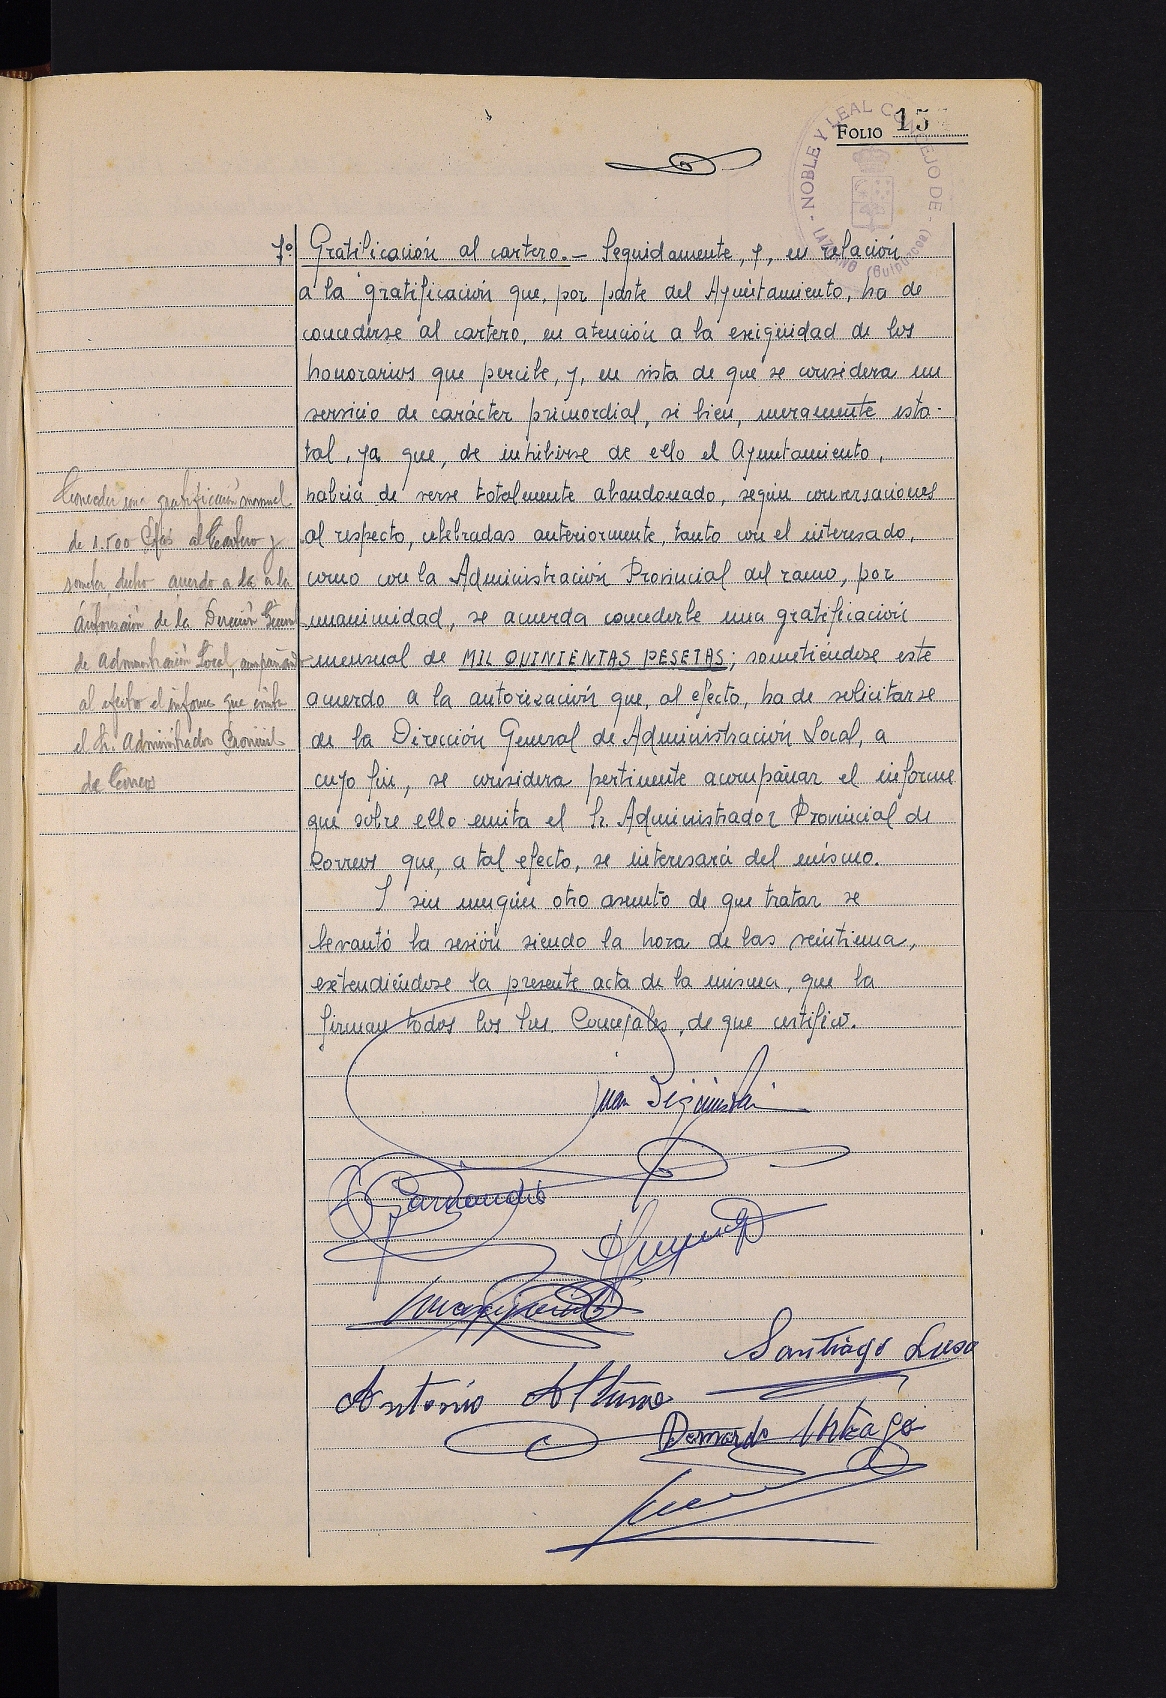 FOLIO 15
NOBLE Y LEAL CONCEJO DE
LAZCANO (Guipúzcoa)
7º Gratificación al cartero.- Seguidamente, y, en relación
a la gratificación que, por parte del Ayuntamiento, ha de
concederse al cartero, en atención a la exigüidad de los
honorarios que percibe, y, en vista de que se considera un
servicio de carácter primordial, si bien, meramente esta-
tal, ya que, de inhibirse de ello el Ayuntamiento,
habría de verse totalmente abandonado, según conversaciones
al respecto, celebradas anteriormente, tanto con el interesado,
como con la Administración Provincial del ramo, por
unanimidad, se acuerda concederle una gratificación
mensual de MIL QUINIENTAS PESETAS; sometiéndose este
acuerdo a la autorización que, al efecto, ha de solicitarse
de la Dirección General de Administración Local, a
cuyo fin, se considera pertinente acompañar el informe
que sobre ello emita el Sr. Administrador Provincial de
Correos que, a tal efecto, se interesará del mismo.
Y sin ningún otro asunto de que tratar se
levantó la sesión siendo la hora de las veintiuna,
extendiéndose la presente acta de la misma, que la
firman todos los Sres. Concejales, de que certifico.
Conceder una gratificación mensual
de 1.500 Ptas al Cartero y
someter dicho acuerdo a la a la
Autorización de la Dirección General
de Administración Local, acompañando
al efecto el informe que emita
el Sr. Administrador Provincial
de Correos
Juan
Garmendia
Santiago Lasa
Antonio Altuna
Bernardo Urteaga